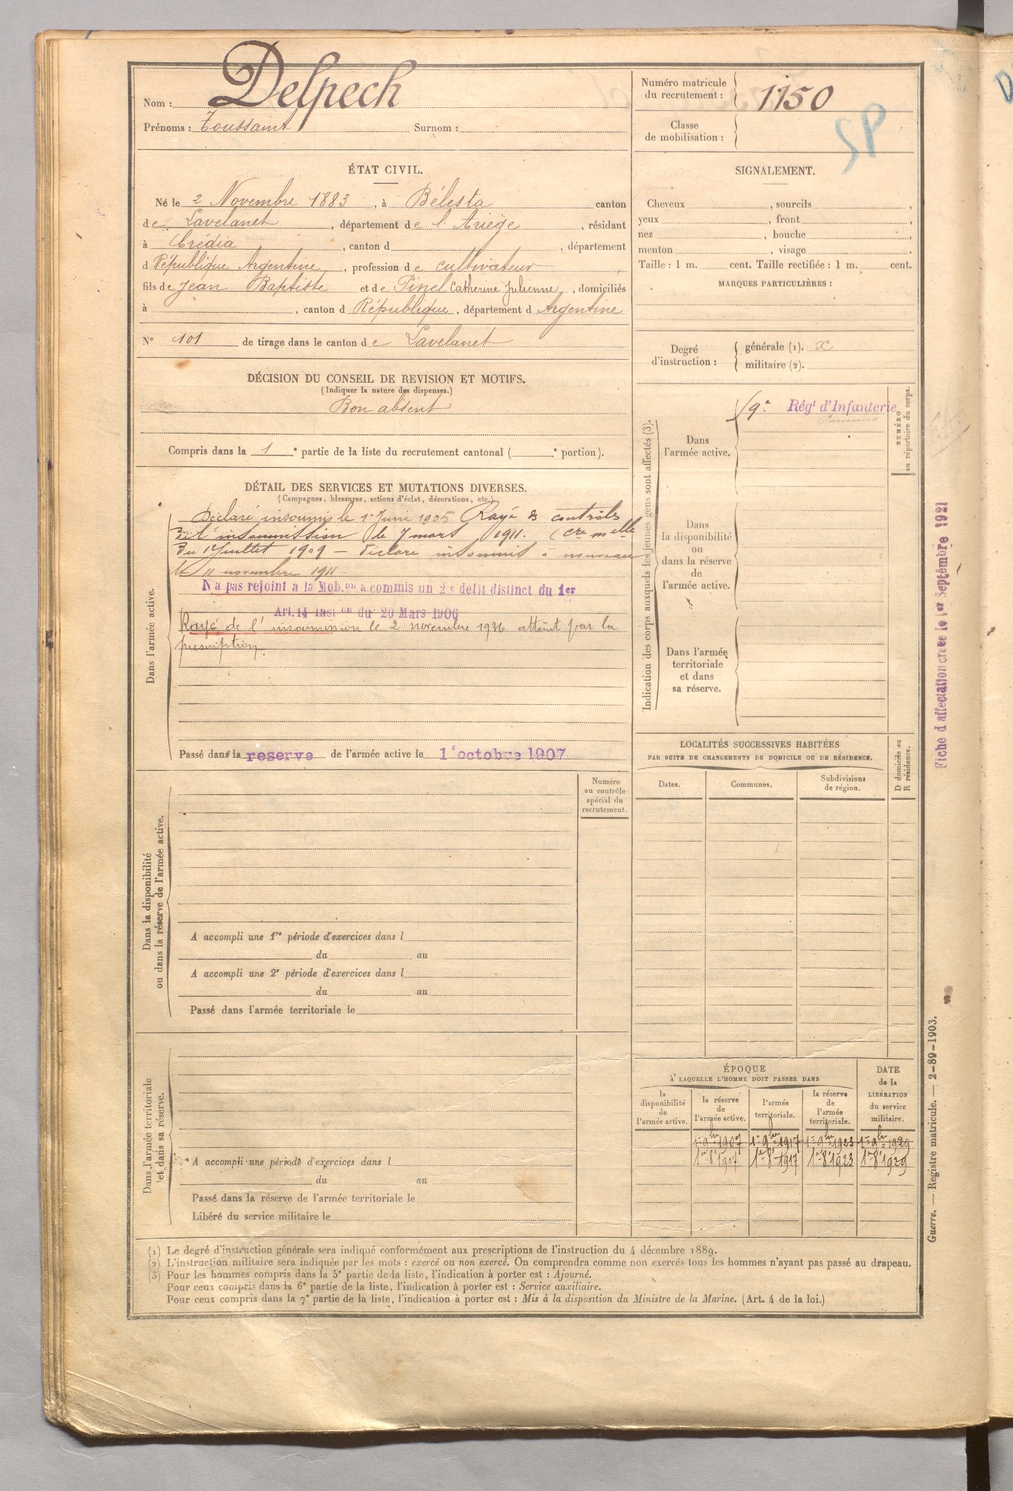 Nom : Delpech
Prénoms : Toussaint Surnom :
Numéro matricule du recrutement : 1150
Classe de mobilisation :
SP
ÉTAT CIVIL.
Né le 2 Novembre 1883, à Bélesta canton
de Lavelanet, département de l'Ariège, résidant
à , canton d , département
d République Argentine, profession de cultivateur
fils de Jean Baptiste et de Pinel Catherine Julienne, domiciliés
à , canton d République, département d Argentine
N° 101 de tirage dans le canton de Lavelanet
SIGNALEMENT.
Cheveux , sourcils ,
yeux , front ,
nez , bouche ,
menton , visage .
Taille : 1 m. cent. Taille rectifiée : 1 m. cent.
MARQUES PARTICULIÈRES :
Degré d'instruction : générale (1). x
militaire (2).
DÉCISION DU CONSEIL DE REVISION ET MOTIFS.
(Indiquer la nature des dispenses.)
Bon absent
Compris dans la 1e partie de la liste du recrutement cantonal ( e portion).
DÉTAIL DES SERVICES ET MUTATIONS DIVERSES.
(Campagnes, blessures, actions d'éclat, décorations, etc.)
Dans l'armée active.
Déclaré insoumis le 1er Juin 1905 Rayé des contrôles
de l'insoumission le 7 mars 1911. (Cre melle
du 1er Juillet 1909 – Déclaré insoumis à nouveau
le 11 novembre 1911
N'a pas rejoint à la Mob.on a commis un 2e délit distinct du 1er
Art. 14 Inst.on du 20 Mars 1906
Rayé de l'insoumission le 2 novembre 1936 atteint par la
prescription.
Passé dans la reserve de l'armée active le 1 octobre 1907
Indication des corps auxquels les jeunes gens sont affectés (3).
NUMÉRO au répertoire du corps.
Dans l'armée active.
Régt d'Infanterie
Dans la disponibilité ou dans la réserve de l'armée active.
Dans l'armée territoriale et dans sa réserve.
Fiche d'affectation créée le 1er Septembre 1921
LOCALITÉS SUCCESSIVES HABITÉES
PAR SUITE DE CHANGEMENTS DE DOMICILE OU DE RÉSIDENCE.
Dates. Communes. Subdivisions de région. D domicile ou R résidence.
Dans la disponibilité ou dans la réserve de l'armée active.
Numéro au contrôle spécial du recrutement.
A accompli une 1re période d'exercices dans l
du au
A accompli une 2e période d'exercices dans l
du au
Passé dans l'armée territoriale le
Dans l'armée territoriale et dans sa réserve.
A accompli une période d'exercices dans l
du au
Passé dans la réserve de l'armée territoriale le
Libéré du service militaire le
ÉPOQUE
À LAQUELLE L'HOMME DOIT PASSER DANS
DATE de la LIBÉRATION du service militaire.
la disponibilité de l'armée active. la réserve de l'armée active. l'armée territoriale. la réserve de l'armée territoriale.
1er 9bre 1907 1er 9bre 1917 1er 9bre 1923 1er 9bre 1929
1er 8bre 1907 1er 8bre 1917 1er 8bre 1923 1er 8bre 1929
Guerre. — Registre matricule. — 2-89-1903.
(1) Le degré d'instruction générale sera indiqué conformément aux prescriptions de l'instruction du 4 décembre 1889.
(2) L'instruction militaire sera indiquée par les mots : exercé ou non exercé. On comprendra comme non exercés tous les hommes n'ayant pas passé au drapeau.
(3) Pour les hommes compris dans la 5e partie de la liste, l'indication à porter est : Ajourné.
Pour ceux compris dans la 6e partie de la liste, l'indication à porter est : Service auxiliaire.
Pour ceux compris dans la 7e partie de la liste, l'indication à porter est : Mis à la disposition du Ministre de la Marine. (Art. 4 de la loi.)